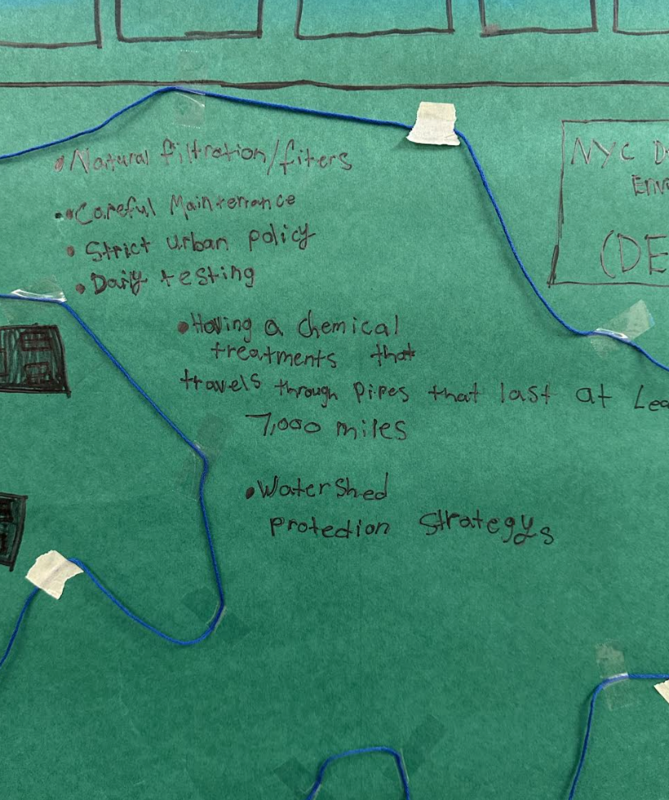 • Natural filtration/fiters
• Careful Maintenance
• Strict urban policy
• Daily testing
• Having a chemical
treatments that
travels through pipes that last at Lea
7,000 miles
• Watershed
protection strategys
NYC D
Env
(DE